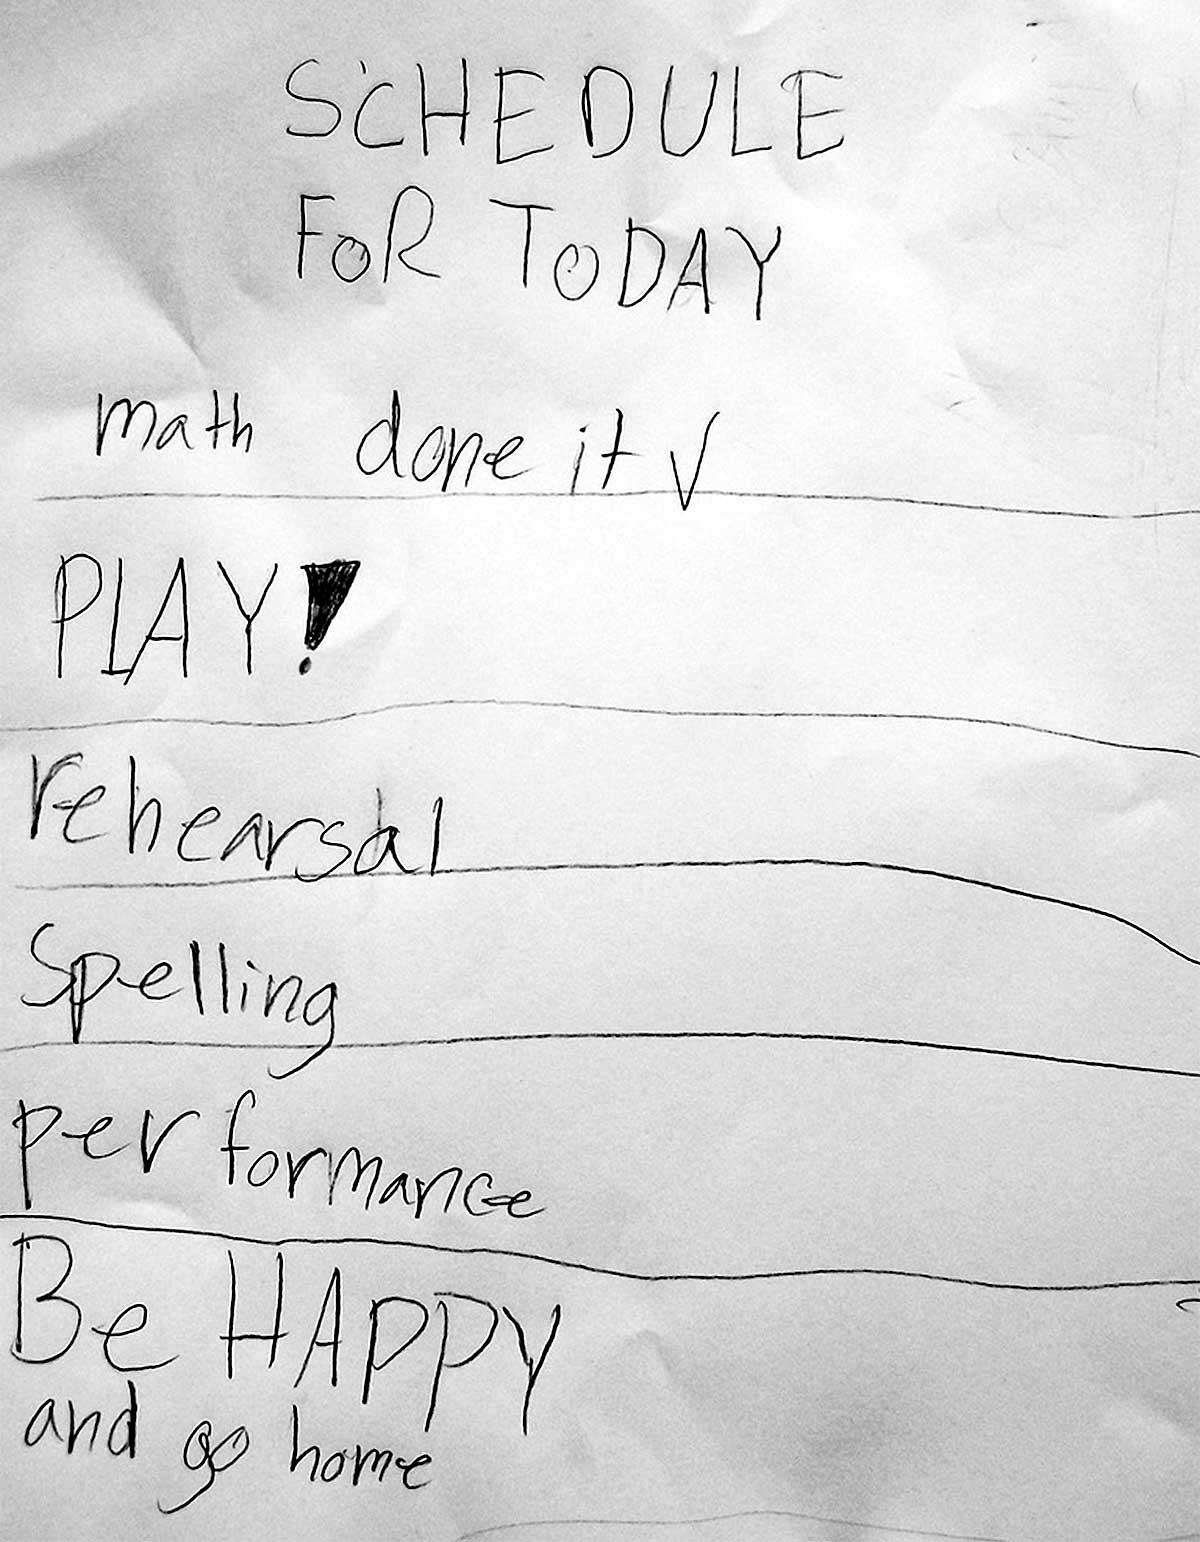 SCHEDULE
FOR TODAY
math done it √
PLAY!
rehearsal
Spelling
performance
Be HAPPY
and go home